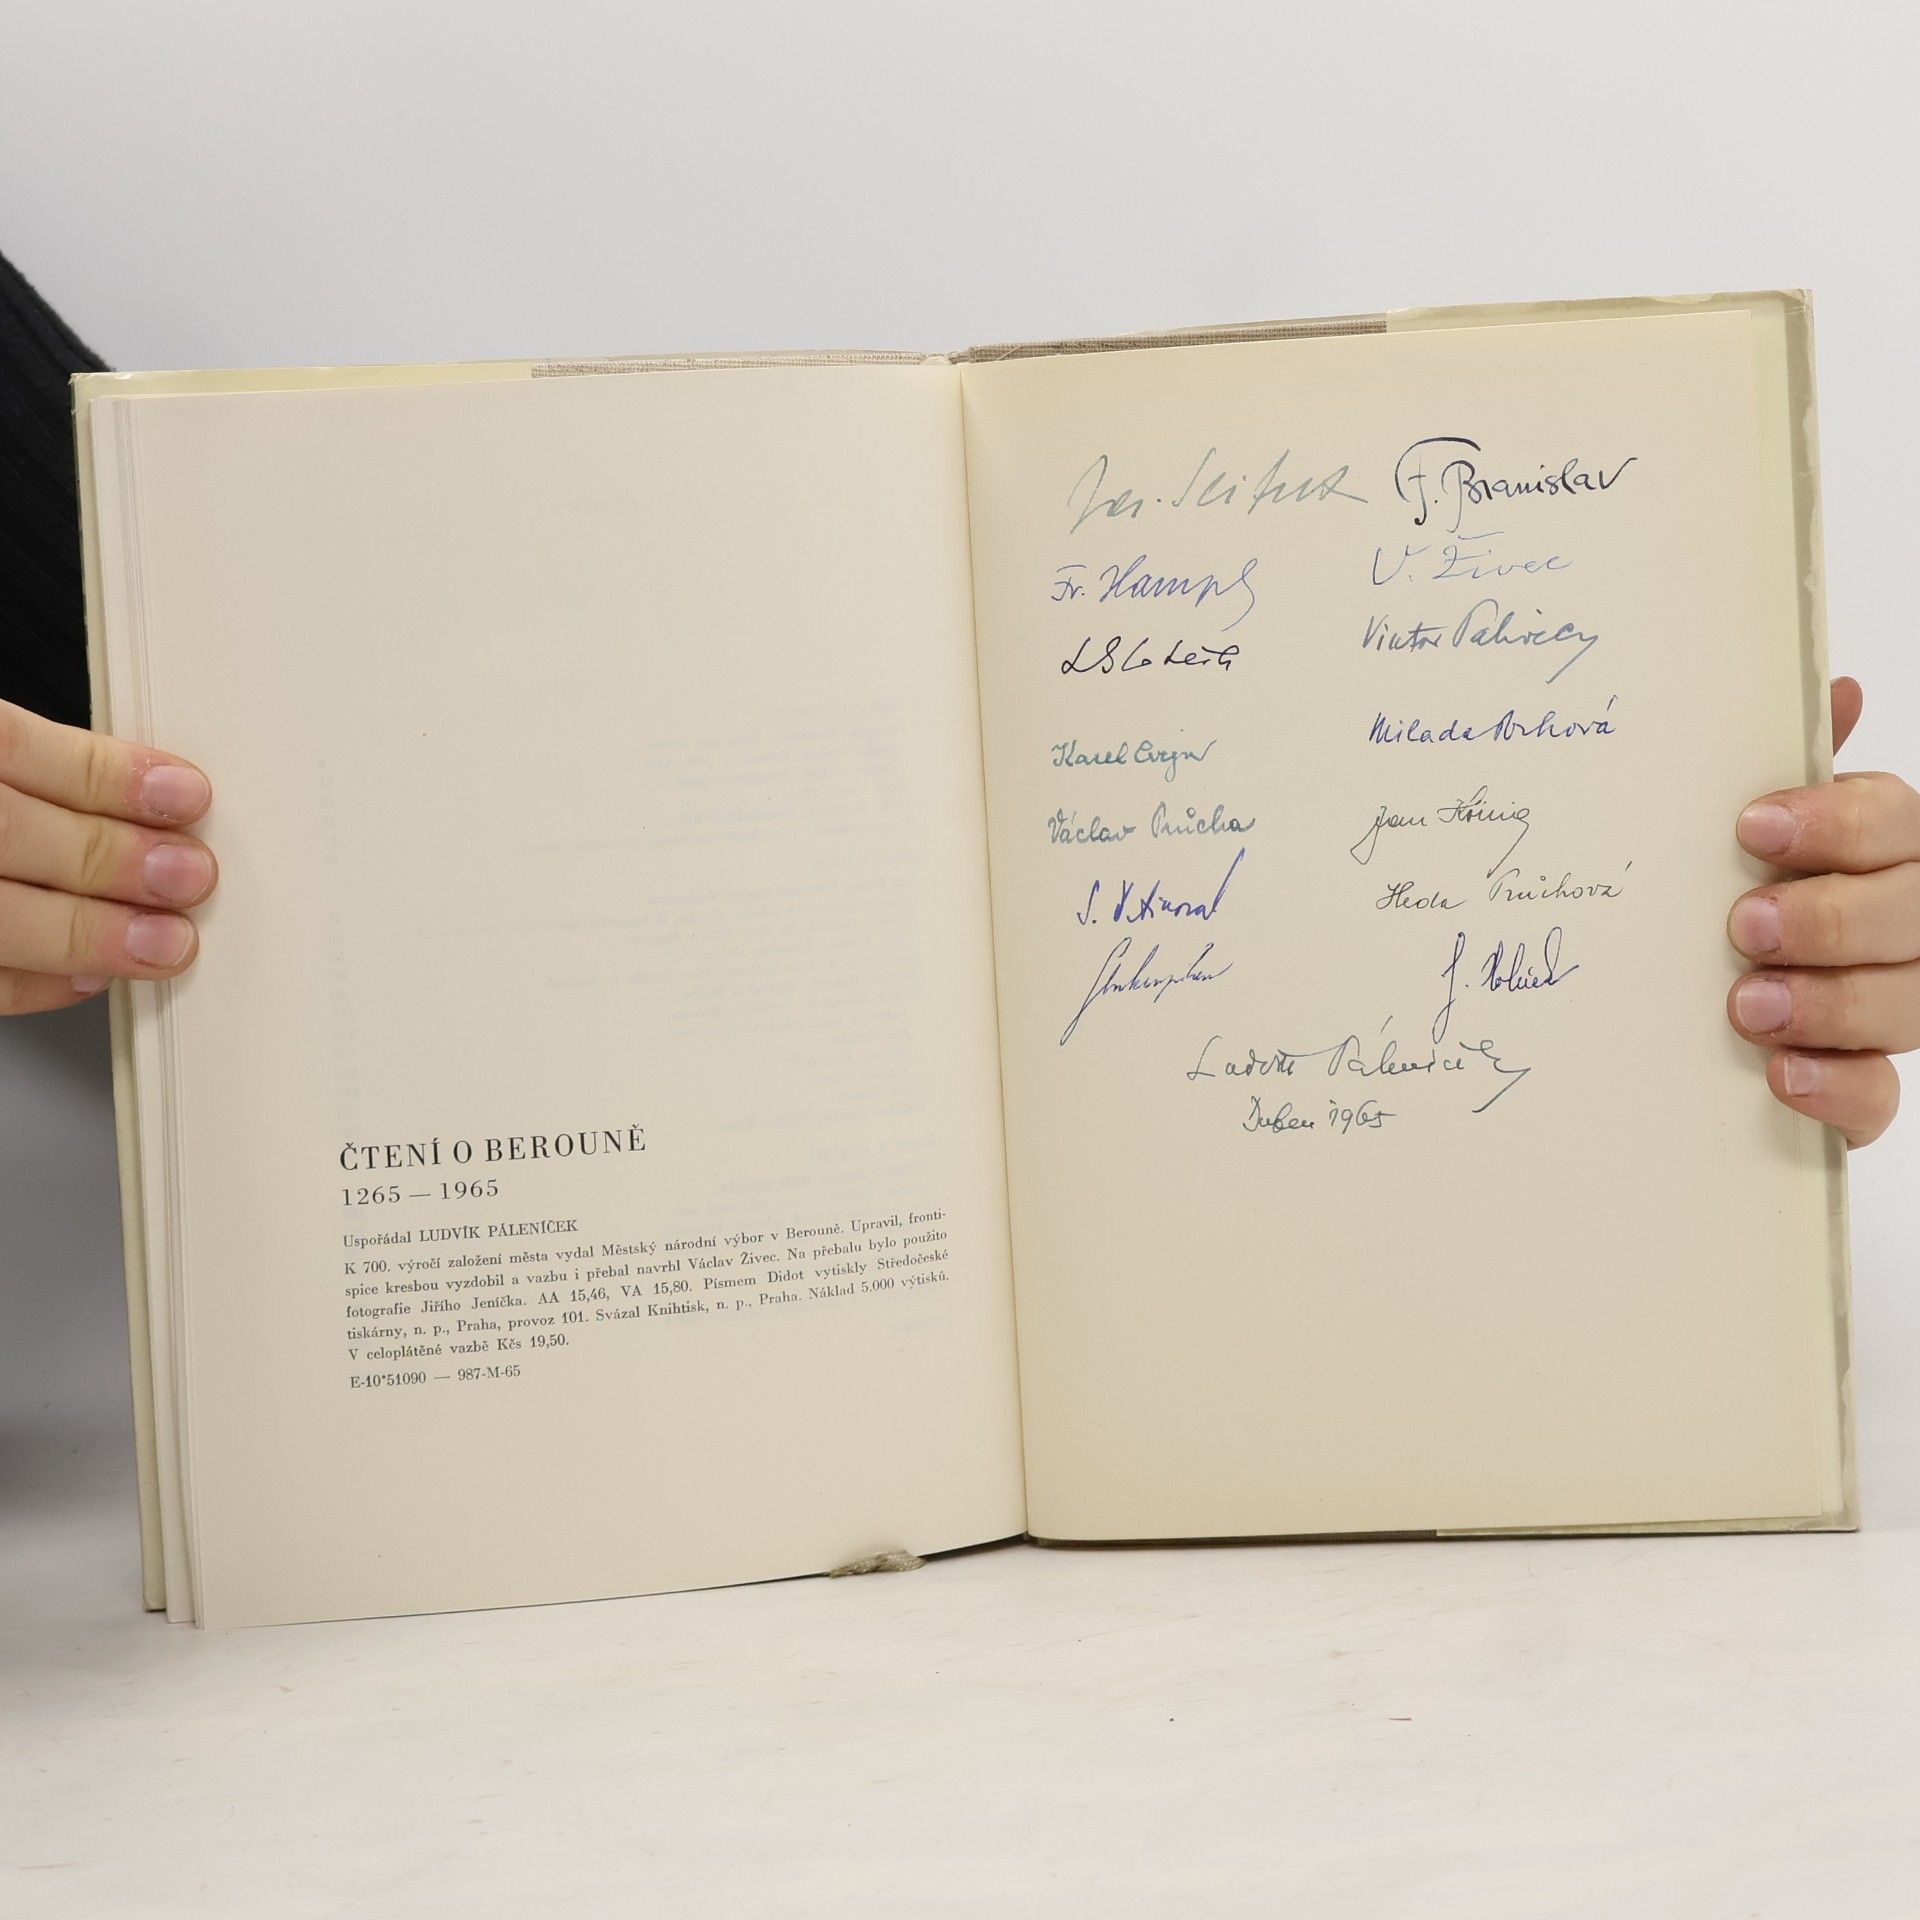 ČTENÍ O BEROUNĚ
1265 — 1965
Uspořádal LUDVÍK PÁLENÍČEK
K 700. výročí založení města vydal Městský národní výbor v Berouně. Upravil, fronti-
spice kresbou vyzdobil a vazbu i přebal navrhl Václav Živec. Na přebalu bylo použito
fotografie Jiřího Jeníčka. AA 15,46, VA 15,80. Písmem Didot vytiskly Středočeské
tiskárny, n. p., Praha, provoz 101. Svázal Knihtisk, n. p., Praha. Náklad 5.000 výtisků.
V celoplátěné vazbě Kčs 19,50.
E-10*51090 — 987-M-65
Jar. Seifert F. Branislav
Fr. Hampl V. Živec
Viktor Palivec
Karel Milada
Václav Průcha Jan König
S. Heda Průchová
J.
Ludvík Páleníček
Duben 1965